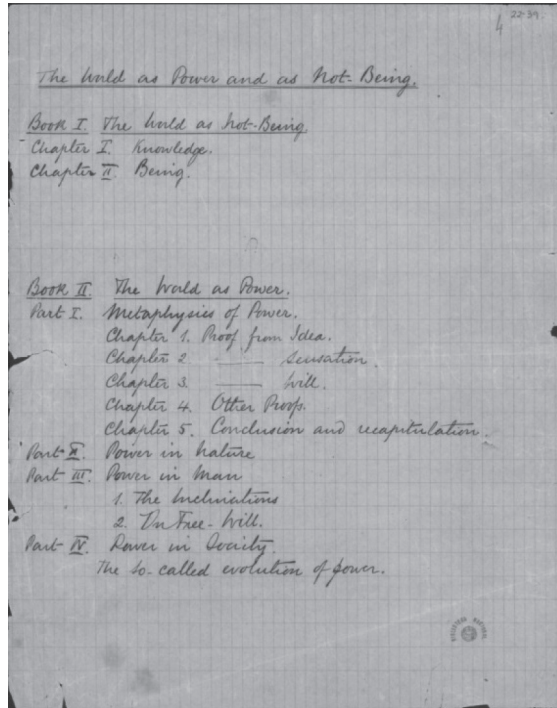 22-39.
4
The World as Power and as Not-Being.
Book I. The World as Not-Being
Chapter I. Knowledge.
Chapter II. Being.
Book II. The World as Power.
Part I. Metaphysics of Power.
Chapter 1. Proof from Idea.
Chapter 2 —— Sensation.
Chapter 3. —— Will.
Chapter 4. Other Proofs.
Chapter 5. Conclusion and recapitulation.
Part II. Power in Nature
Part III. Power in Man
1. The Inclinations
2. Free-Will.
Part IV. Power in Society.
The so-called evolution of power.